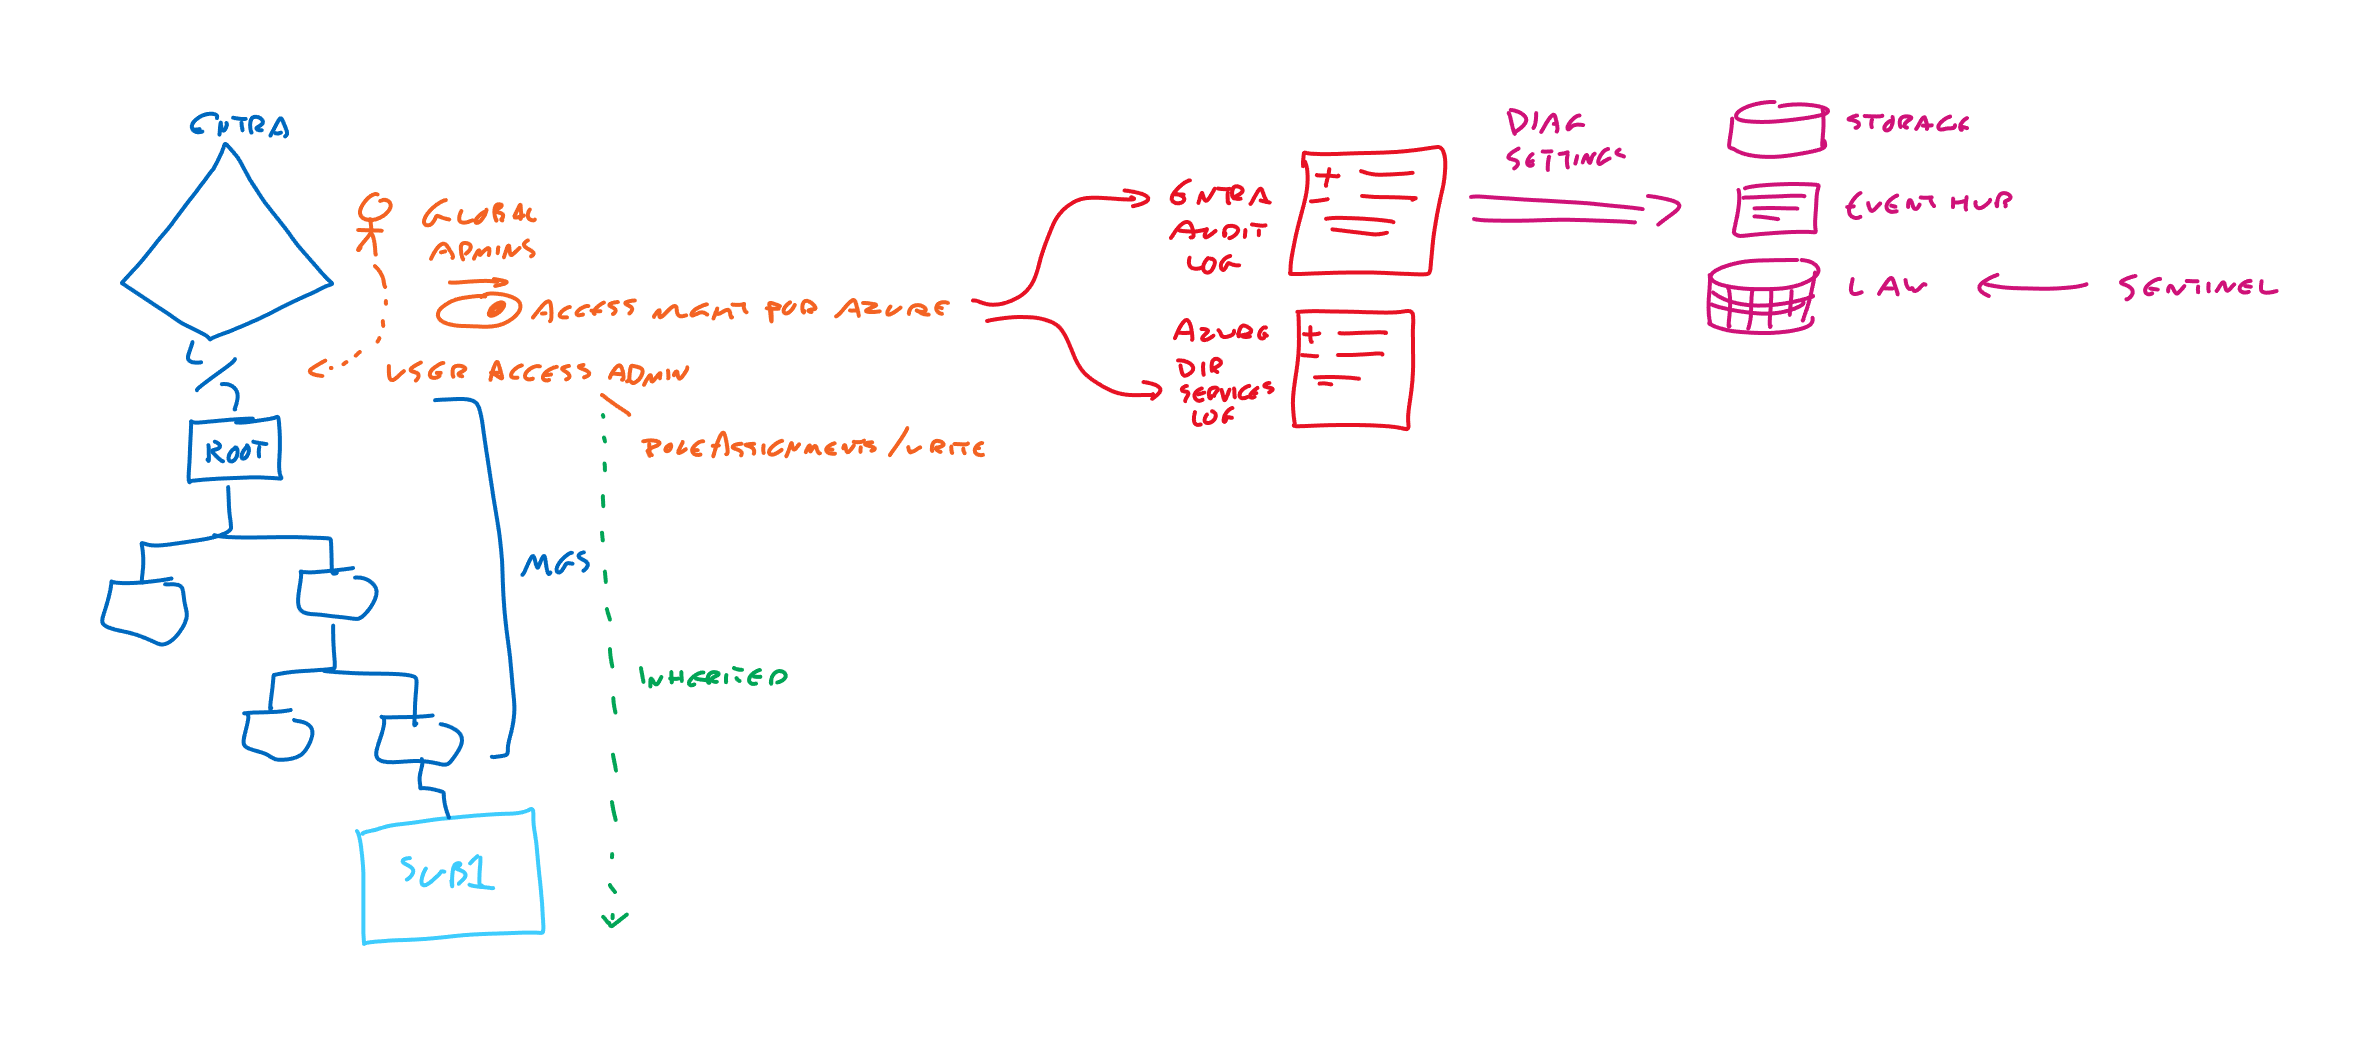 ENTRA
GLOBAL
ADMINS
ACCESS MGMT FOR AZURE
USER ACCESS ADMIN
ROLEASSIGNMENTS/WRITE
/
ROOT
MGS
INHERITED
SUB1
ENTRA
AUDIT
LOG
+
-
AZURE
DIR
SERVICES
LOG
+
-
DIAG
SETTINGS
STORAGE
EVENT HUB
LAW
SENTINEL